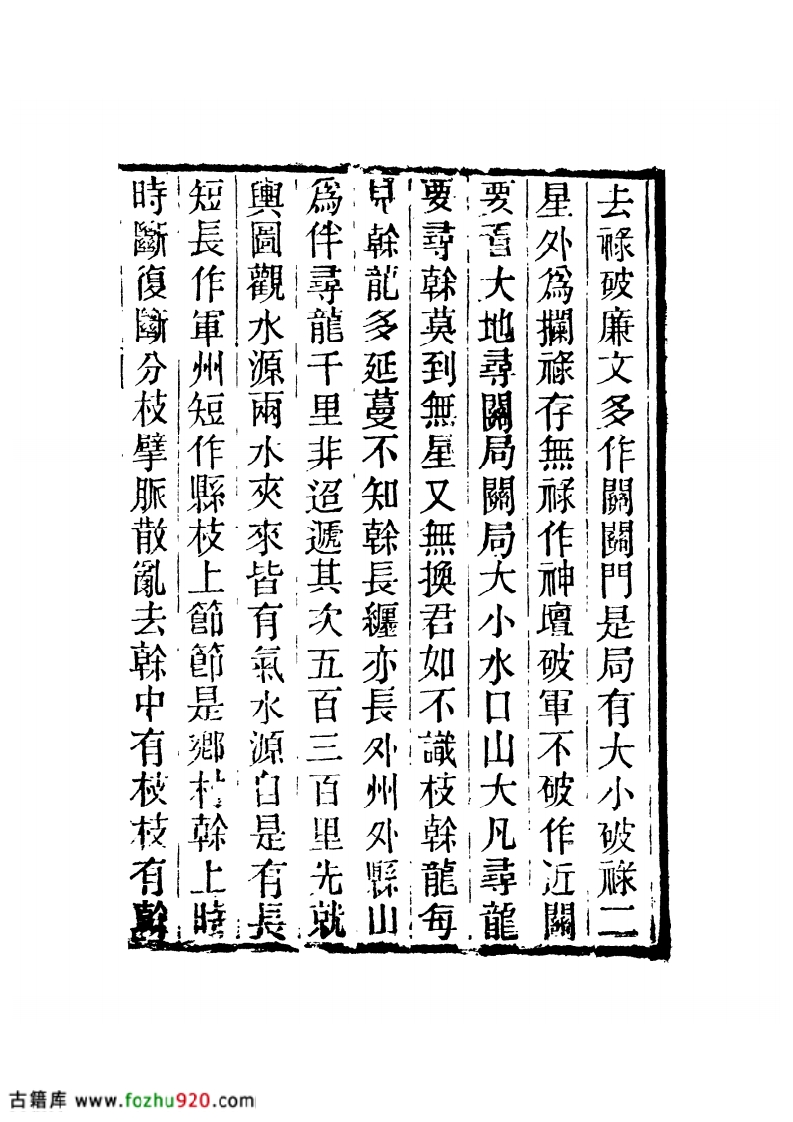 去祿破廉文多作關關門是局有大小破祿二
星外爲攔祿存無祿作神壇破軍不破作近關
要看大地尋關局關局大小水口山大凡尋龍
要尋幹莫到無星又無換君如不識枝幹龍每
見幹龍多延蔓不知幹長纏亦長外州外縣山
爲伴尋龍千里非迢遞其次五百三百里先就
輿圖觀水源兩水夾來皆有氣水源自是有長
短長作軍州短作縣枝上節節是鄉村幹上時
時斷復斷分枝擘脈散亂去幹中有枝枝有幹
古籍库 www.fozhu920.com